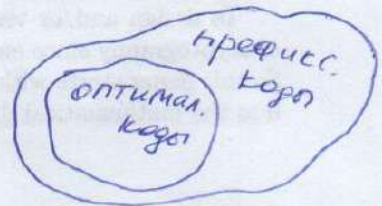 префикс.
коды
оптимал.
коды